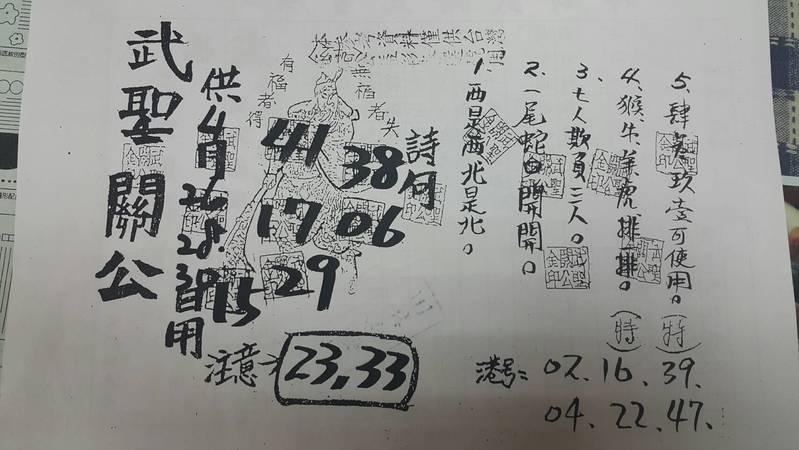 武聖關公
供4月26.28.30日用
有福者得
無福者失
詩句
41
38
17
06
29
15
注意:
23,33
1.西是西北是北。
2.一尾蛇自開開。
3.七人欺負三人。
4.猴牛羊虎排排。(特)
5.肆叁玖壹可使用。(特)
港号:02.16.39.
04.22.47.